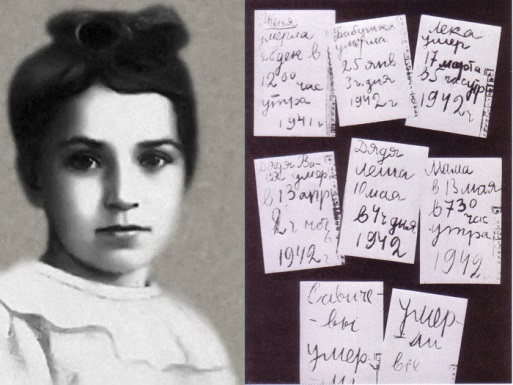 Женя
умерла
28 дек в
12 00 час
утра
1941 г
Бабушка
умерла
25 янв
3 ч. дня
1942 г
Лека
умер
17 марта
в 5 час утр
1942 г
Дядя Ва-
ся умер
в 13 апр
2 ч ночь
1942 г
Дядя
Леша
10 мая
в 4 ч дня
1942
Мама
в 13 мая
в 7 30
час
утра
1942
Савиче-
-вы
умер-
ли
умер-
ли
все